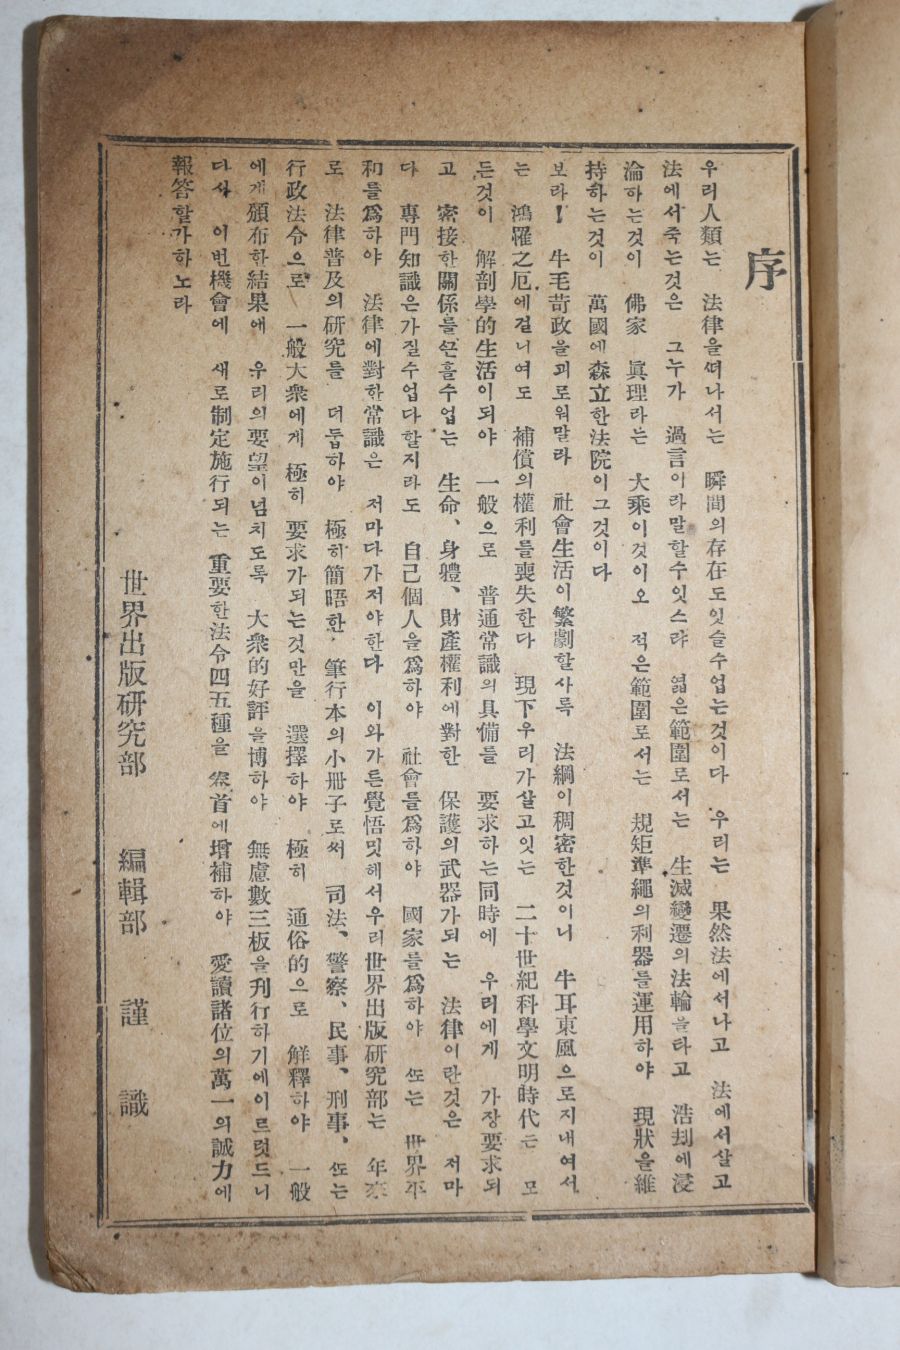 序
우리人類는 法律을ᄯᅥ나서는 瞬間의存在도잇슬수업는것이다 우리는 果然法에서나고 法에서살고
法에서죽는것은 그누가 過言이라말할수잇스랴 엷은範圍로서는 生滅變遷의法輪을라고 浩刧에浸
淪하는것이 佛家 眞理라는 大乘이것이오 적은範圍로서는 規矩準繩의利器를運用하야 現狀을維
持하는것이 萬國에森立한法院이그것이다
보라! 牛毛苛政을괴로워말라 社會生活이繁劇할사록 法網이稠密한것이니 牛耳東風으로지내여서
는 鴻罹之厄에걸니여도 補償의權利를喪失한다 現下우리가살고잇는 二十世紀科學文明時代는 모
든것이 解剖學的生活이되야 一般으로 普通常識의具備를 要求하는同時에 우리에게 가장要求되
고 密接한關係를ᄭᅳᆫ흘수업는 生命、身軆、財產權利에對한 保護의武器가되는 法律이란것은 저마
다 專門知識은가질수업다할지라도 自己個人을爲하야 社會를爲하야 國家를爲하야 ᄯᅩ는 世界平
和를爲하야 法律에對한常識은 저마다가저야한다 이와가튼覺悟밋헤서우리世界出版研究部는 年來
로 法律普及의研究를 더둡하야 極히簡晤한 筆行本의小冊子로써 司法、警察、民事、刑事、ᄯᅩ는
行政法令으로 一般大衆에게 極히 要求가되는것만을 選擇하야 極히 通俗的으로 解釋하야 一般
에게頒布한結果에 우리의要望이넘치도록 大衆的好評을博하야 無慮數三板을刊行하기에이르럿드니
다시 이번機會에 새로制定施行되는 重要한法令四五種을 卷首에增補하야 愛讀諸位의萬一의誠力에
報答할가하노라
世界出版研究部 編輯部 謹 識